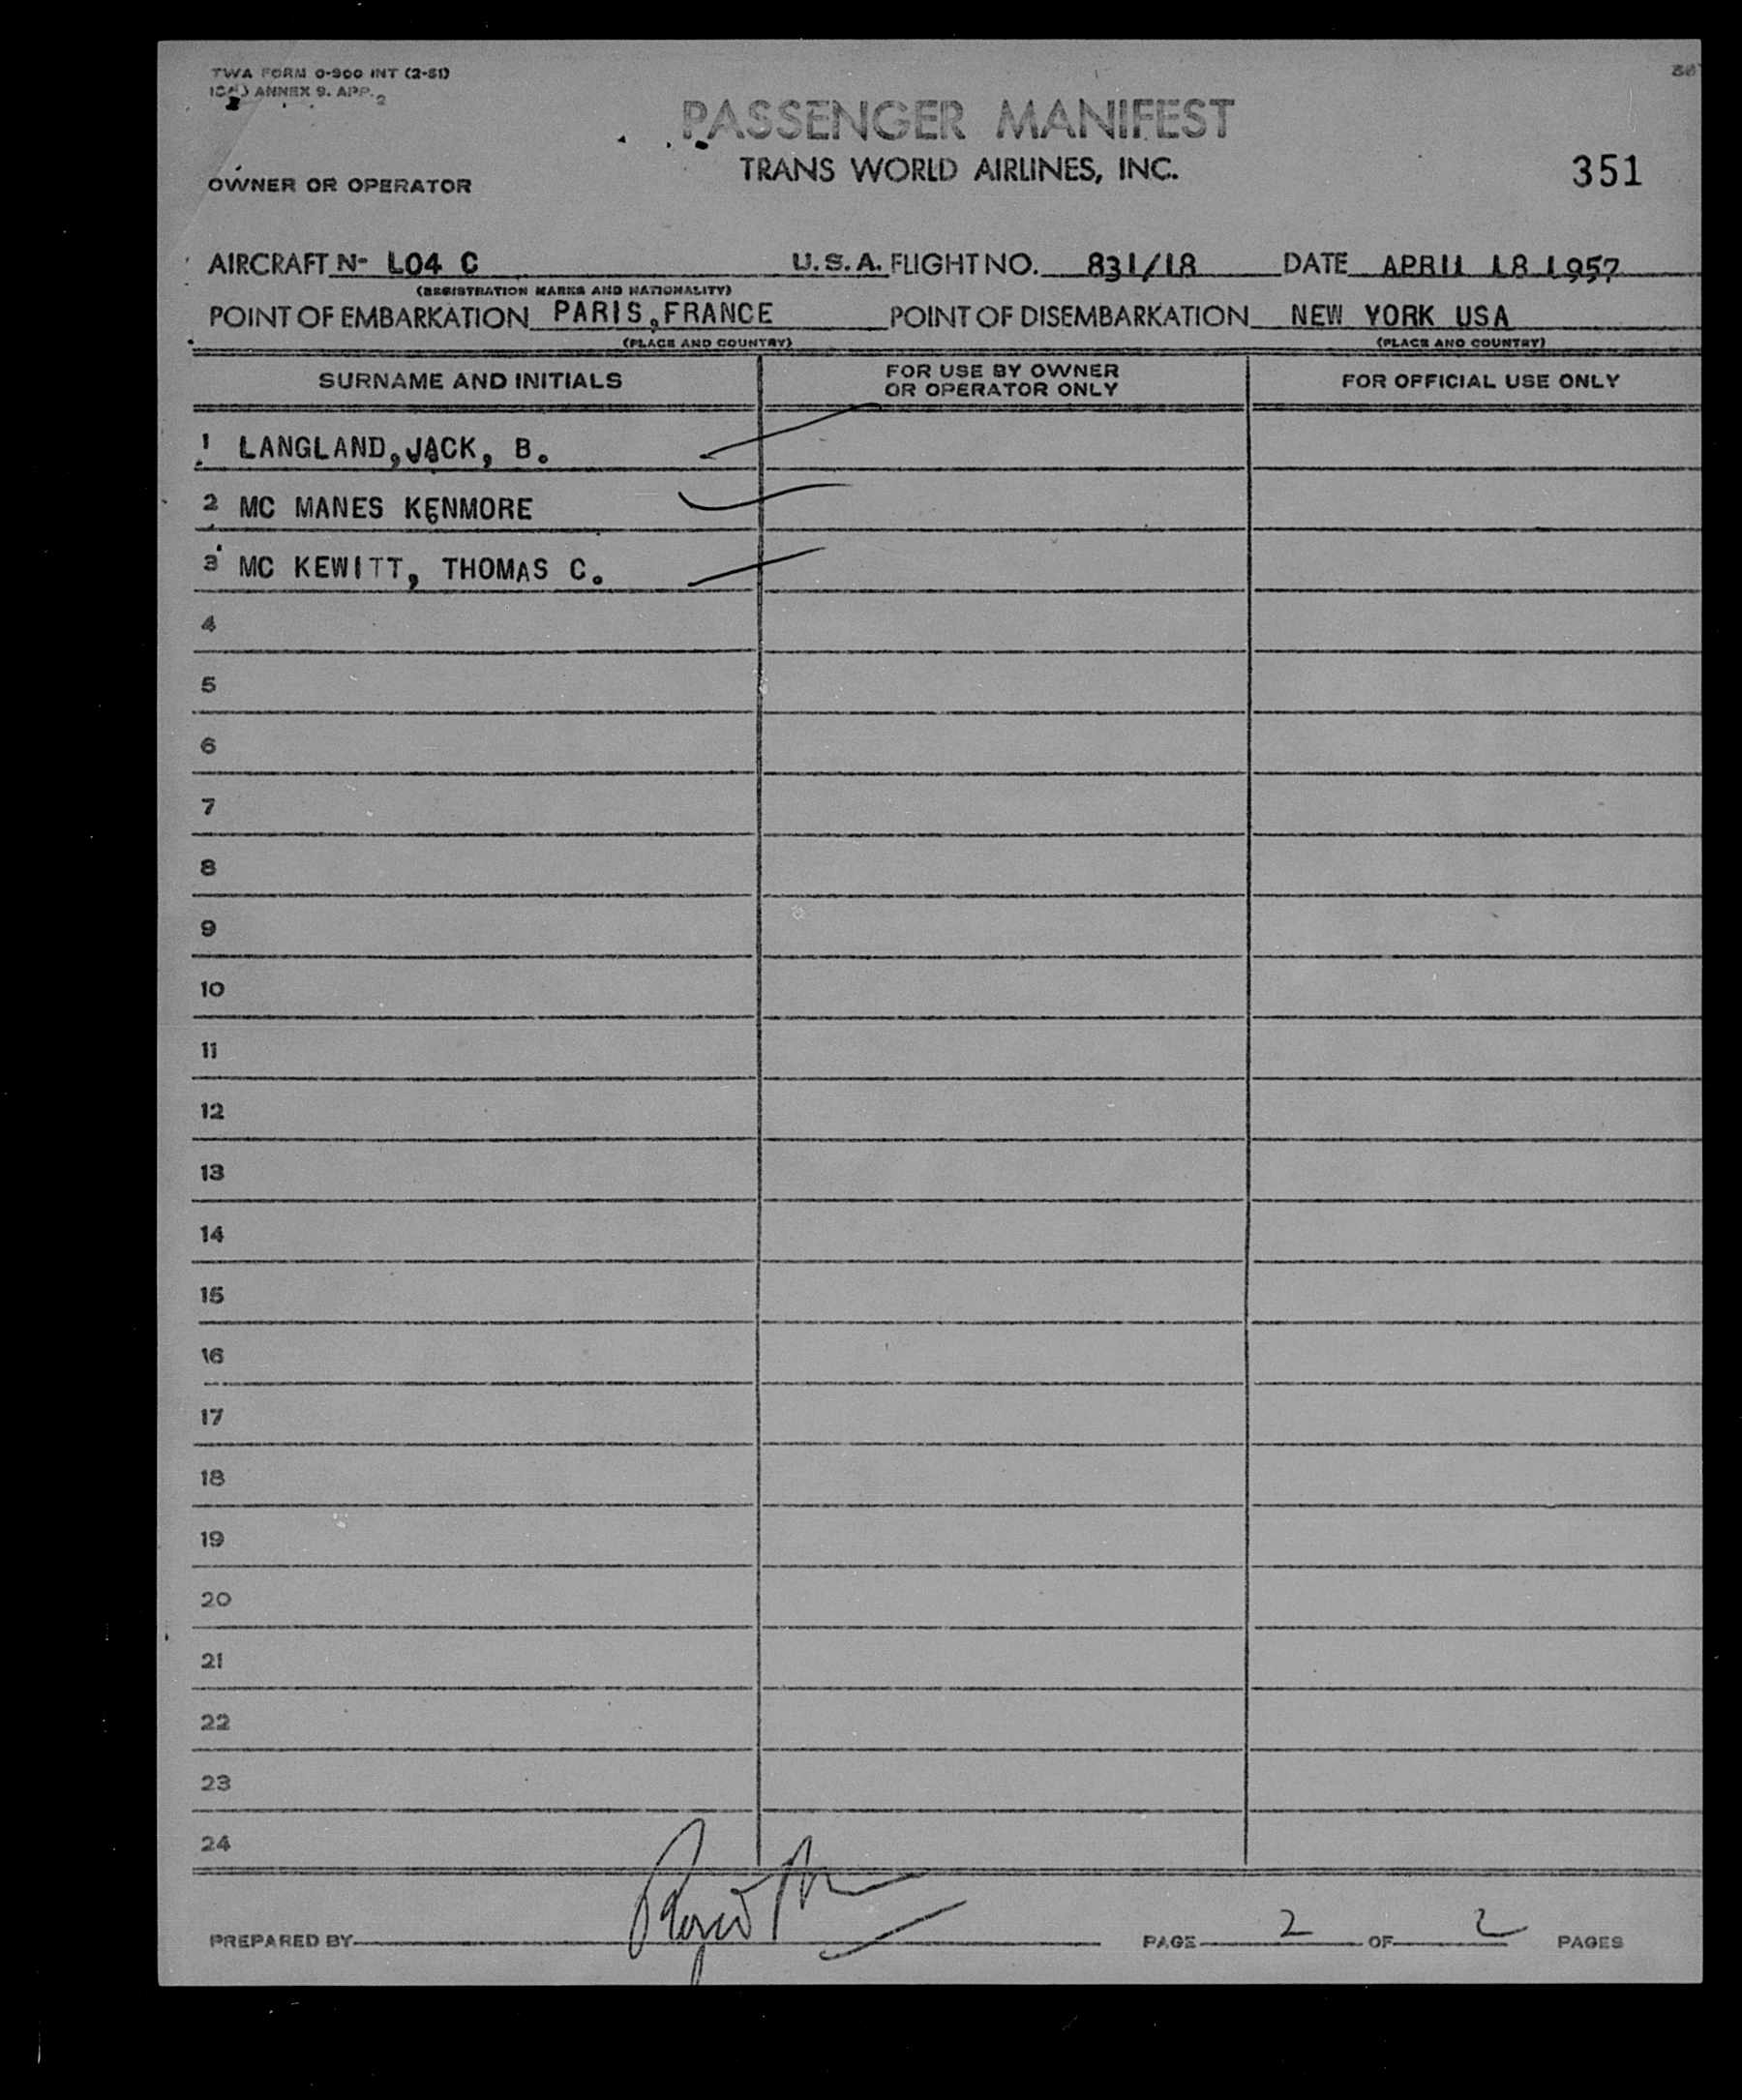 TWA FORM 0-900 INT (2-51)
ANNEX 9. APP. 2
PASSENGER MANIFEST
TRANS WORLD AIRLINES, INC.
351
OWNER OR OPERATOR
AIRCRAFT Nº L04 C U.S.A. FLIGHT NO. 831/18 DATE APRIL 18 1957
(REGISTRATION MARKS AND NATIONALITY)
POINT OF EMBARKATION PARIS, FRANCE POINT OF DISEMBARKATION NEW YORK USA
(PLACE AND COUNTRY) (PLACE AND COUNTRY)
SURNAME AND INITIALS FOR USE BY OWNER OR OPERATOR ONLY FOR OFFICIAL USE ONLY
1 LANGLAND, JACK, B.
2 MC MANES KENMORE
3 MC KEWITT, THOMAS C.
4
5
6
7
8
9
10
11
12
13
14
15
16
17
18
19
20
21
22
23
24
PREPARED BY PAGE 2 OF 2 PAGES